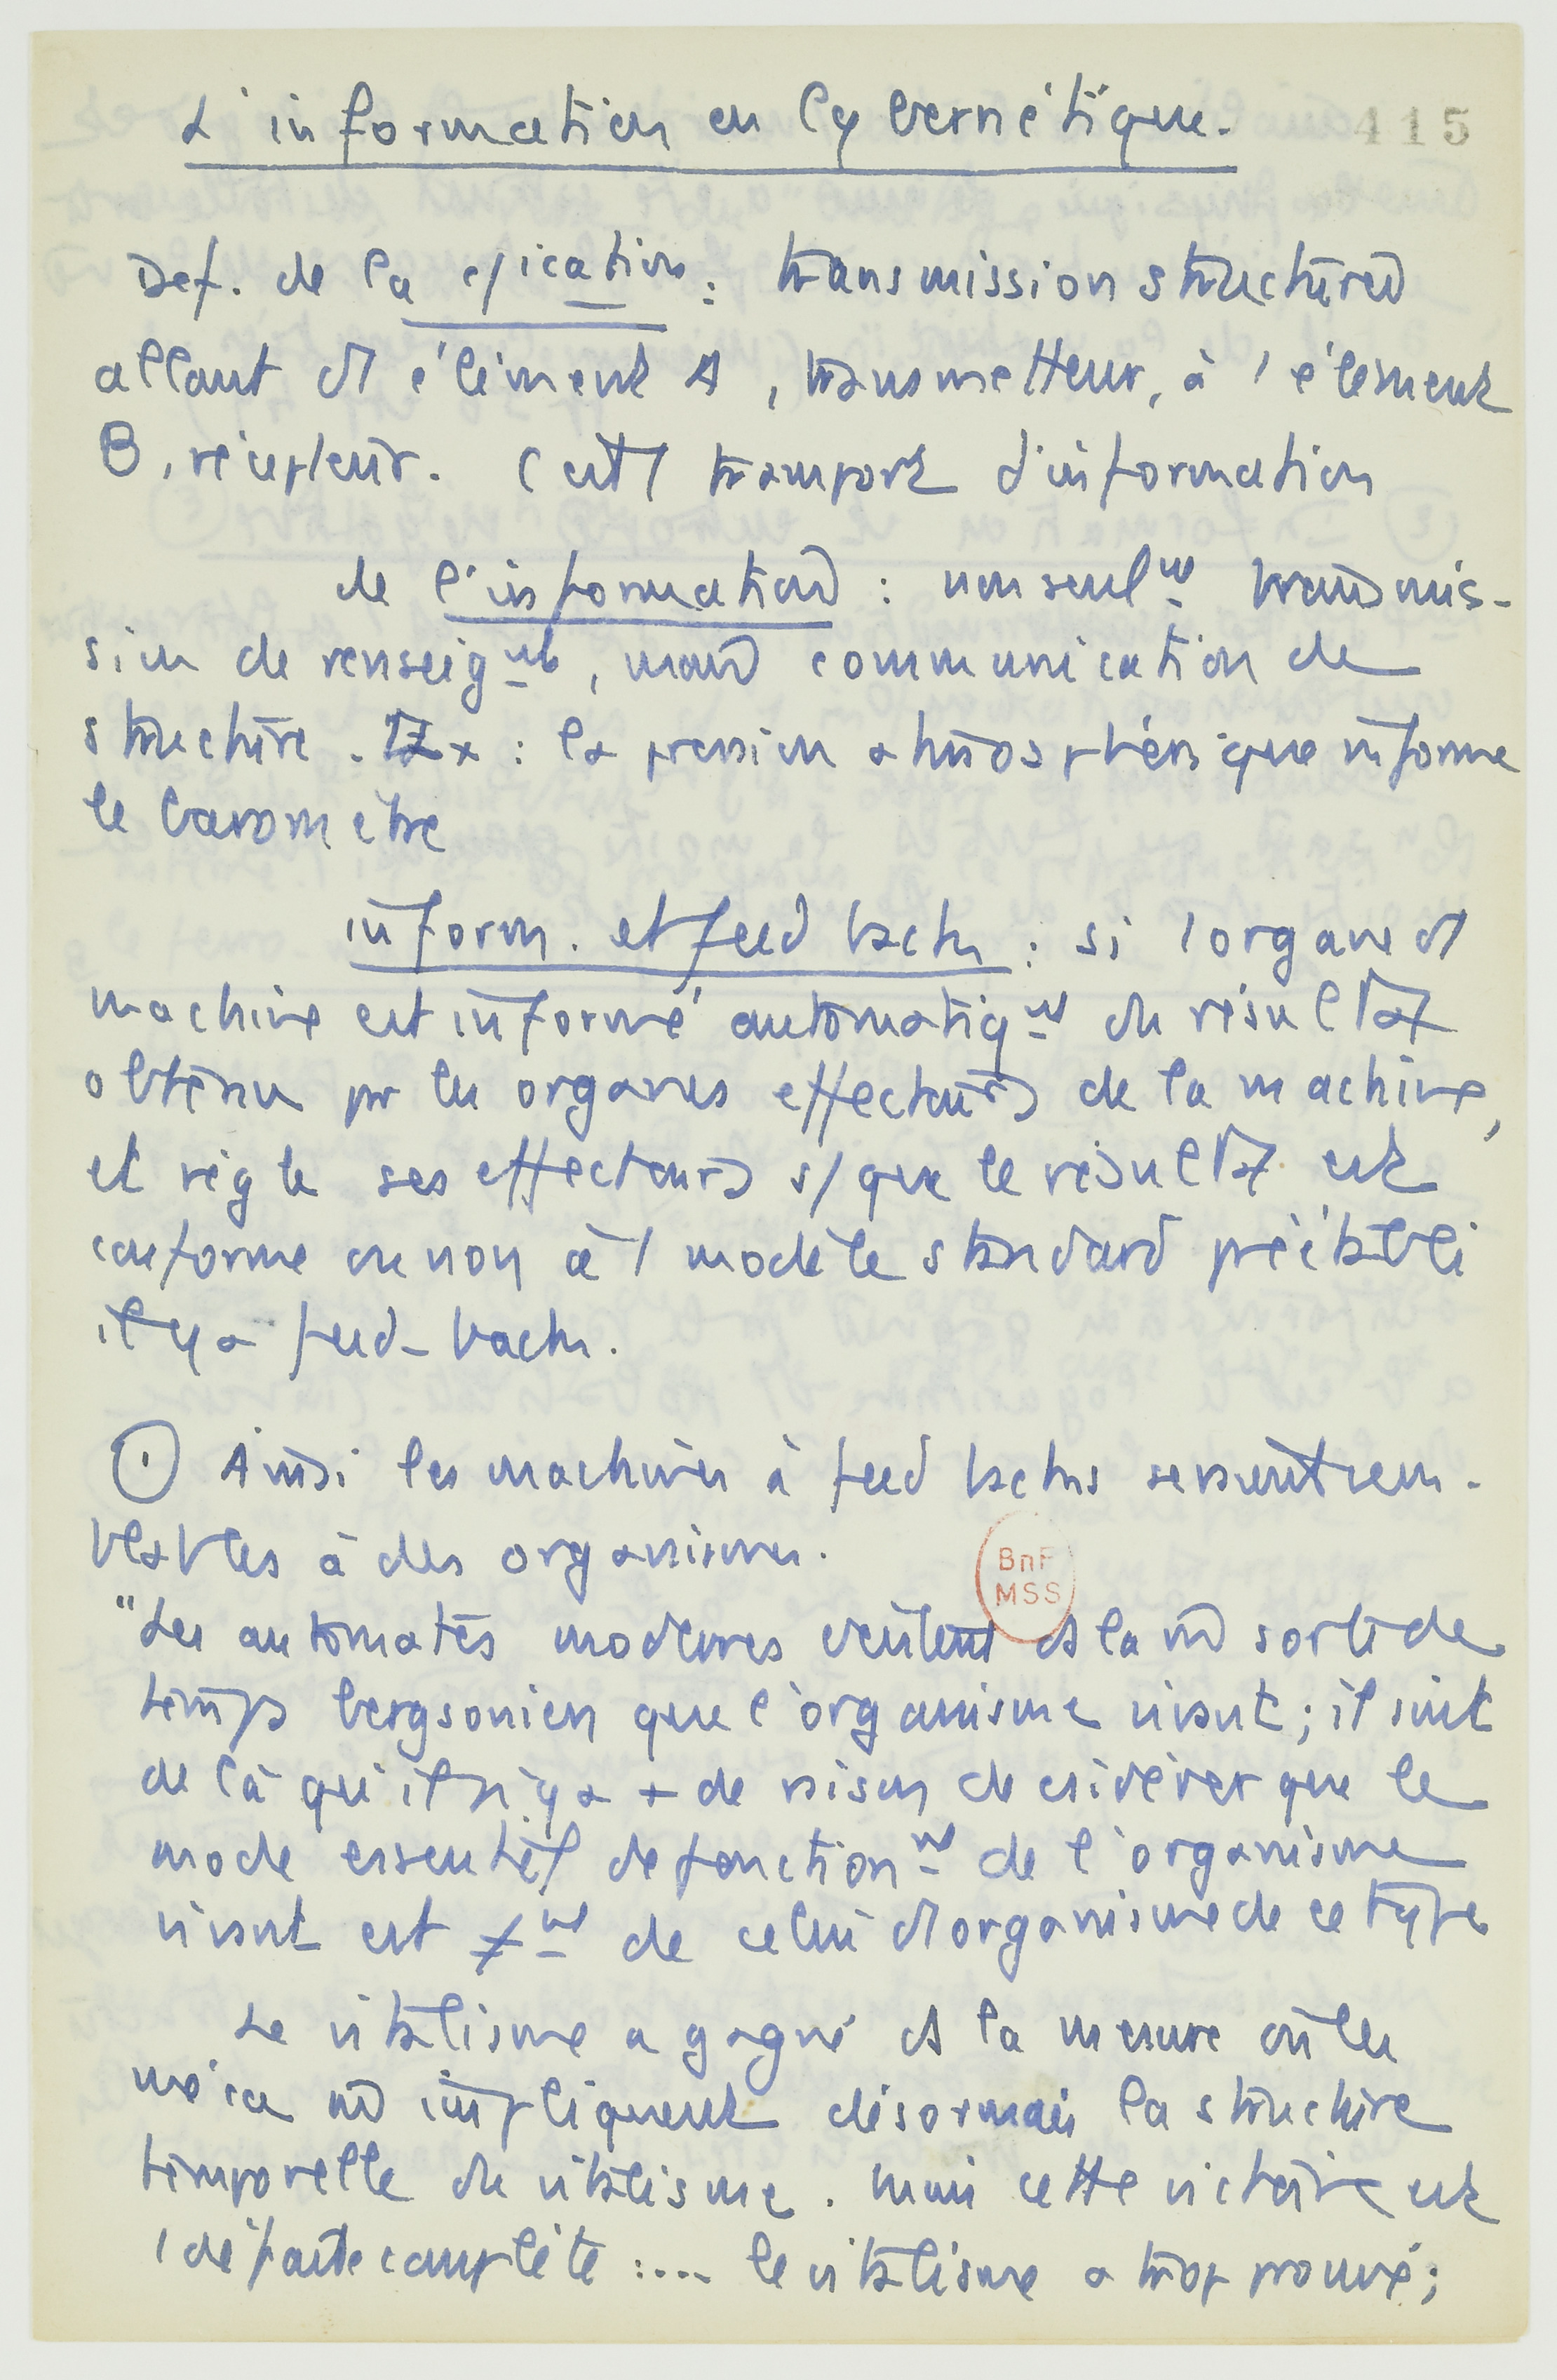 L'information en Cybernétique.
415
Def. de la c/ication : transmission structurée
allant d'1 élément A, transmetteur, à 1 élément
B, récepteur. C'est 1 transport d'information
de l'information : non seulmt transmis-
sion de renseigmt, mais communication de
structure. Ex : la pression atmosphérique informe
le baromètre
inform. et feed back : si 1 organe d'1
machine est informé automatiqmt du résultat
obtenu pr les organes effecteurs de la machine,
et règle ses effecteurs s/ que le résultat est
conforme ou non à 1 modèle standard préétabli
il y a feed-back.
① Ainsi les machines à feed backs seraient sem-
blables à des organismes.
"Les automates modernes existent ds la m̂ sorte de
temps bergsonien que l'organisme vivant ; il suit
de là qu'il n'y a + de raison de considérer que le
mode essentiel de fonctionmt de l'organisme
vivant est ≠mt de celui d'1 organisme de ce type
Le vitalisme a gagné ds la mesure où les
méca m̂ impliquent désormais la structure
temporelle du vitalisme. Mais cette victoire est
1 défaite complète : .... le vitalisme a trop prouvé ;
BnF
MSS